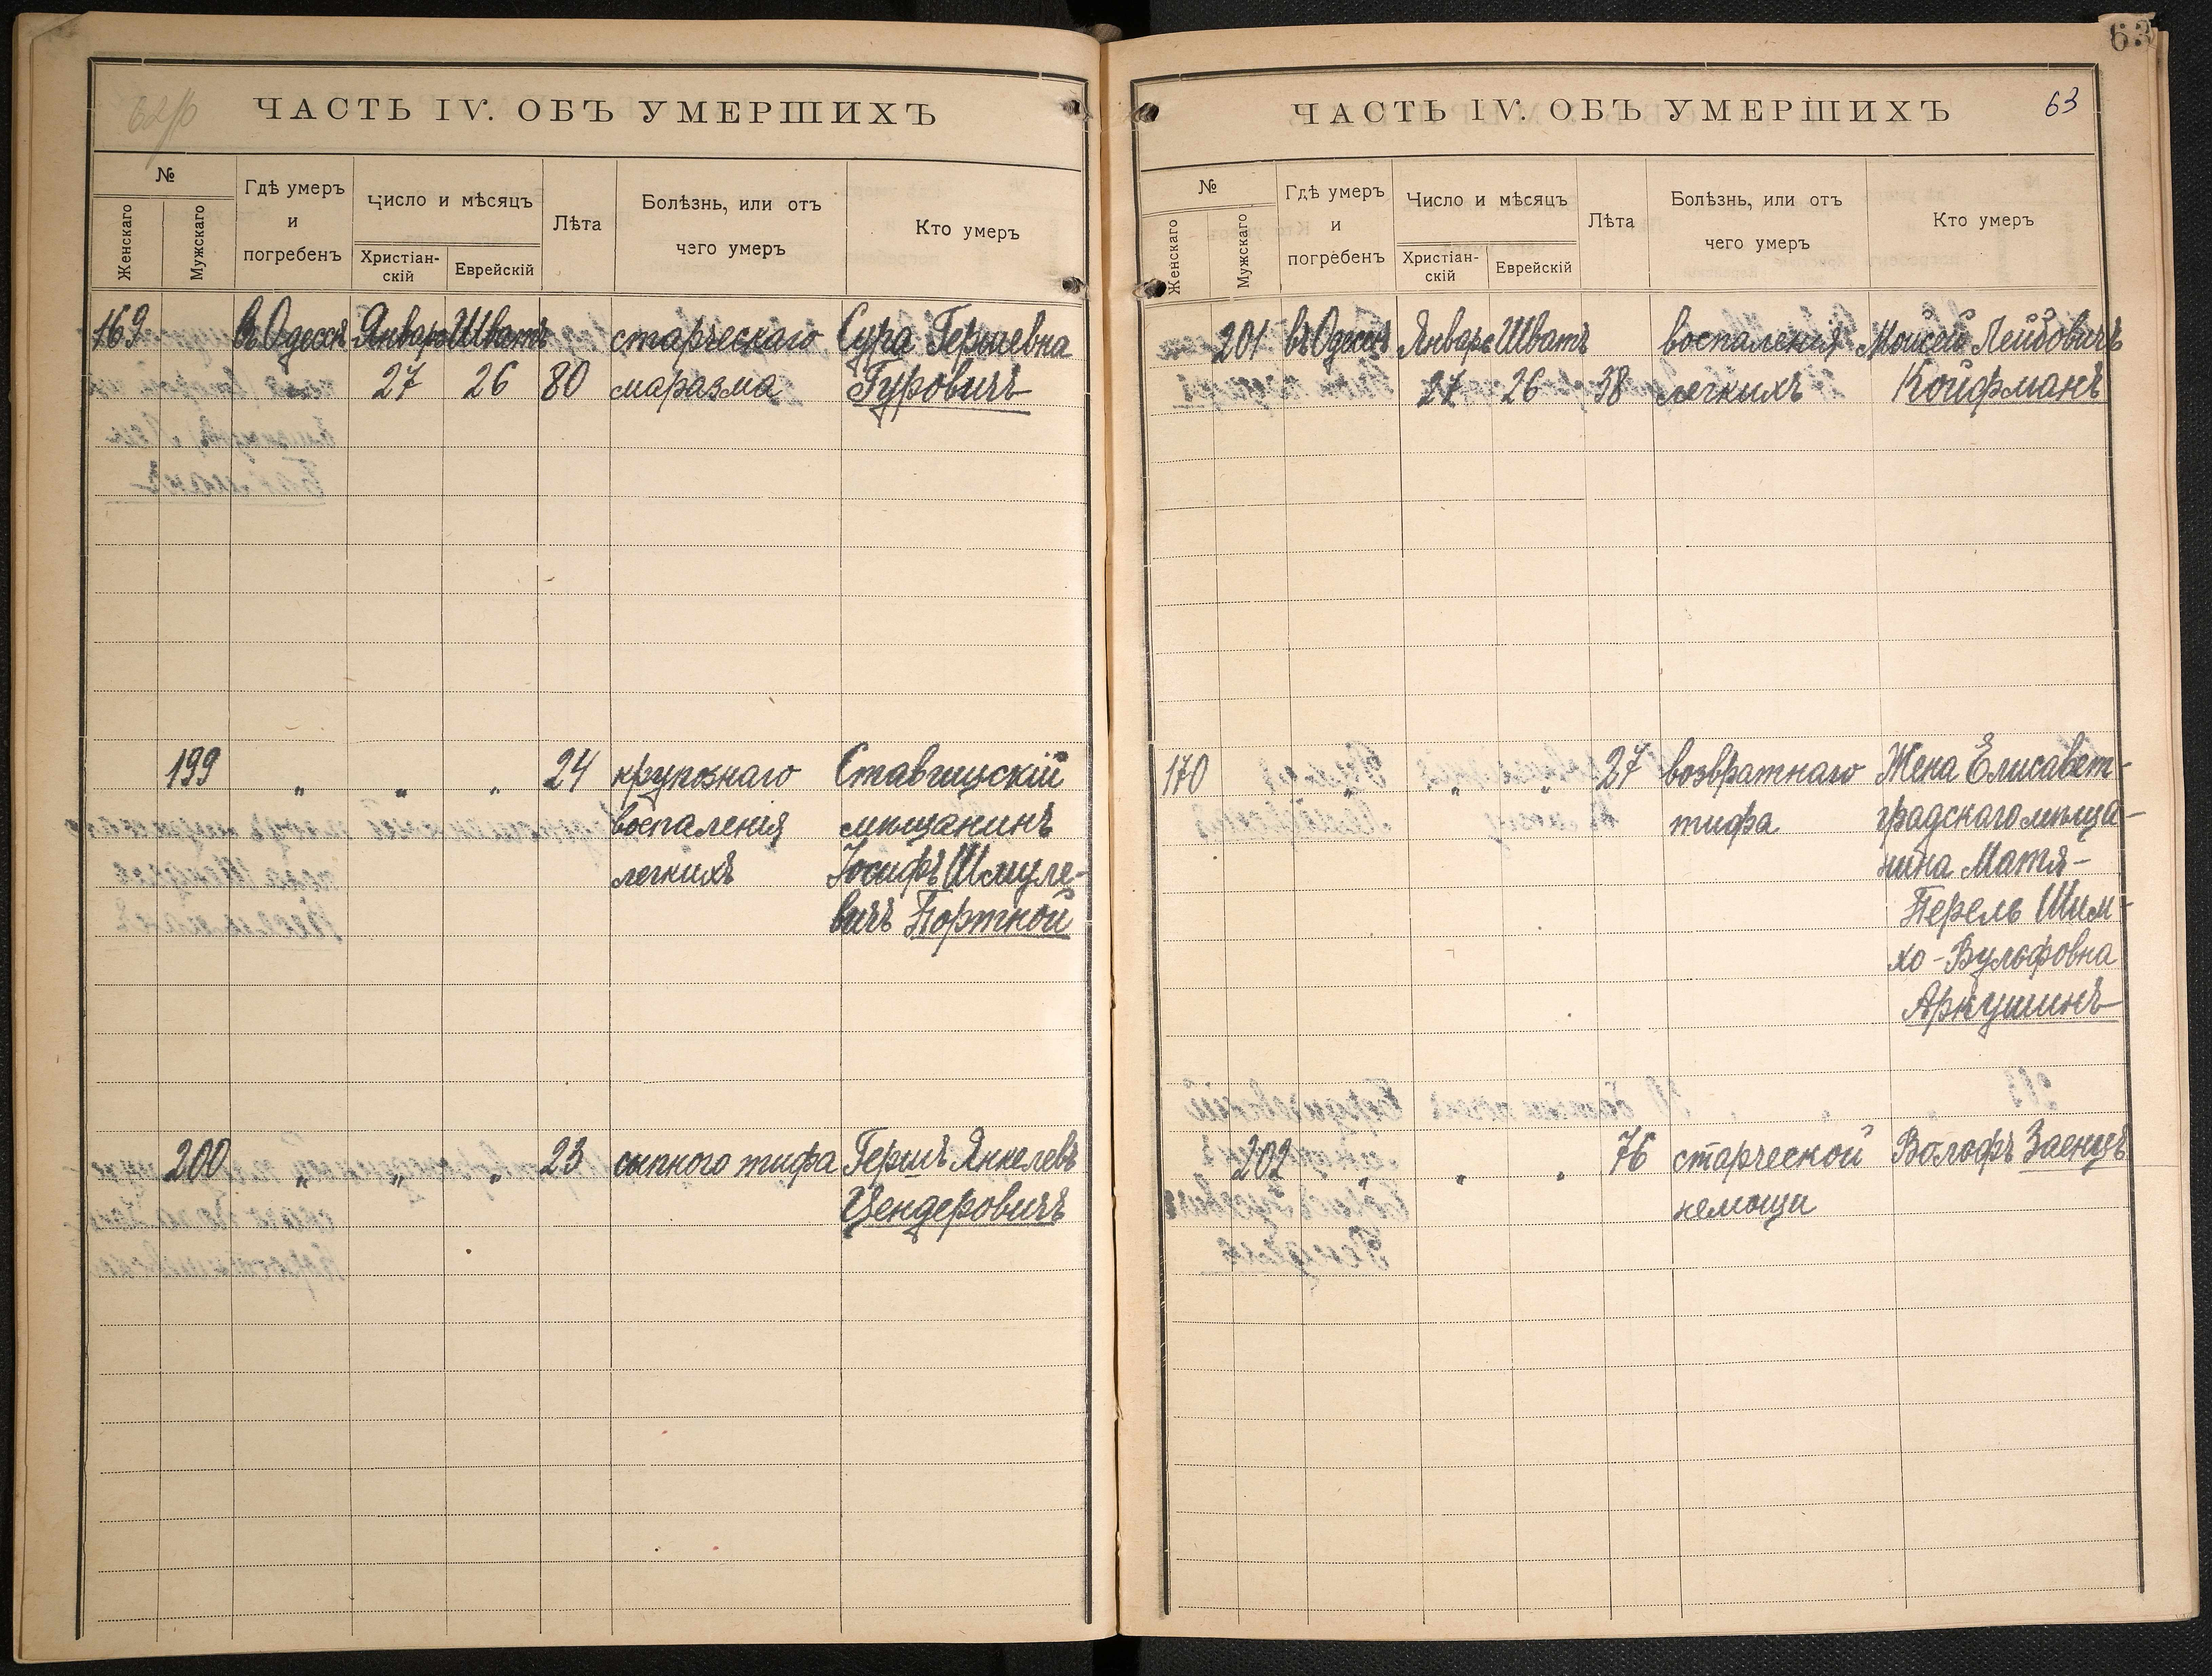 62/б
ЧАСТЬ IV. ОБЪ УМЕРШИХЪ
№
Женскаго
Мужскаго
Гдѣ умеръ
и
погребенъ
Число и мѣсяцъ
Христіан-
скій
Еврейскій
Лѣта
Болѣзнь, или отъ
чего умеръ
Кто умеръ
169 въ Одессѣ Январь Шватъ старческаго Сура Гершевна
27 26 80 маразма Гуровичъ
199 „ „ „ 24 крупознаго Ставищскій
воспаленія мѣщанинъ
легкихъ Іосифъ Шмуле-
вичъ Портной
200 „ „ „ 23 сыпного тифа Гершъ Янкелевъ
Цендеровичъ
63
ЧАСТЬ IV. ОБЪ УМЕРШИХЪ
63
№
Женскаго
Мужскаго
Гдѣ умеръ
и
погребенъ
Число и мѣсяцъ
Христіан-
скій
Еврейскій
Лѣта
Болѣзнь, или отъ
чего умеръ
Кто умеръ
201 въ Одессѣ Январь Шватъ воспаленія Моисей Лейбовичъ
27 26 38 легкихъ Койфманъ
170 „ „ „ 27 возвратнаго Жена Елисавет-
тифа градскаго мѣща-
нина Матя-
Перель Шим-
хо-Вульфовна
Аркушинъ
202 „ „ „ 76 старческой Вольфъ Заенцъ
немощи